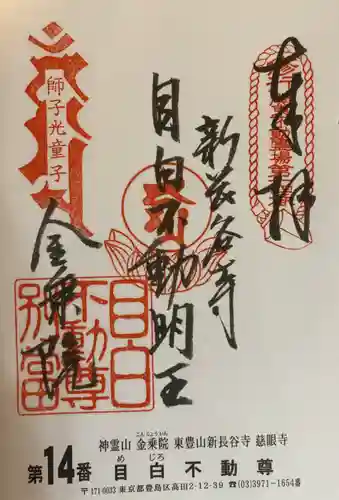 奉拝
新長谷寺
目白不動明王
金乗院
師子光童子
目白
不動尊
別當
神霊山 金乗院 東豊山新長谷寺 慈眼寺
こんじょういん
第14番 目白不動尊
めじろ
〒171-0033 東京都豊島区高田2-12-39 ☎(03)3971-1654番